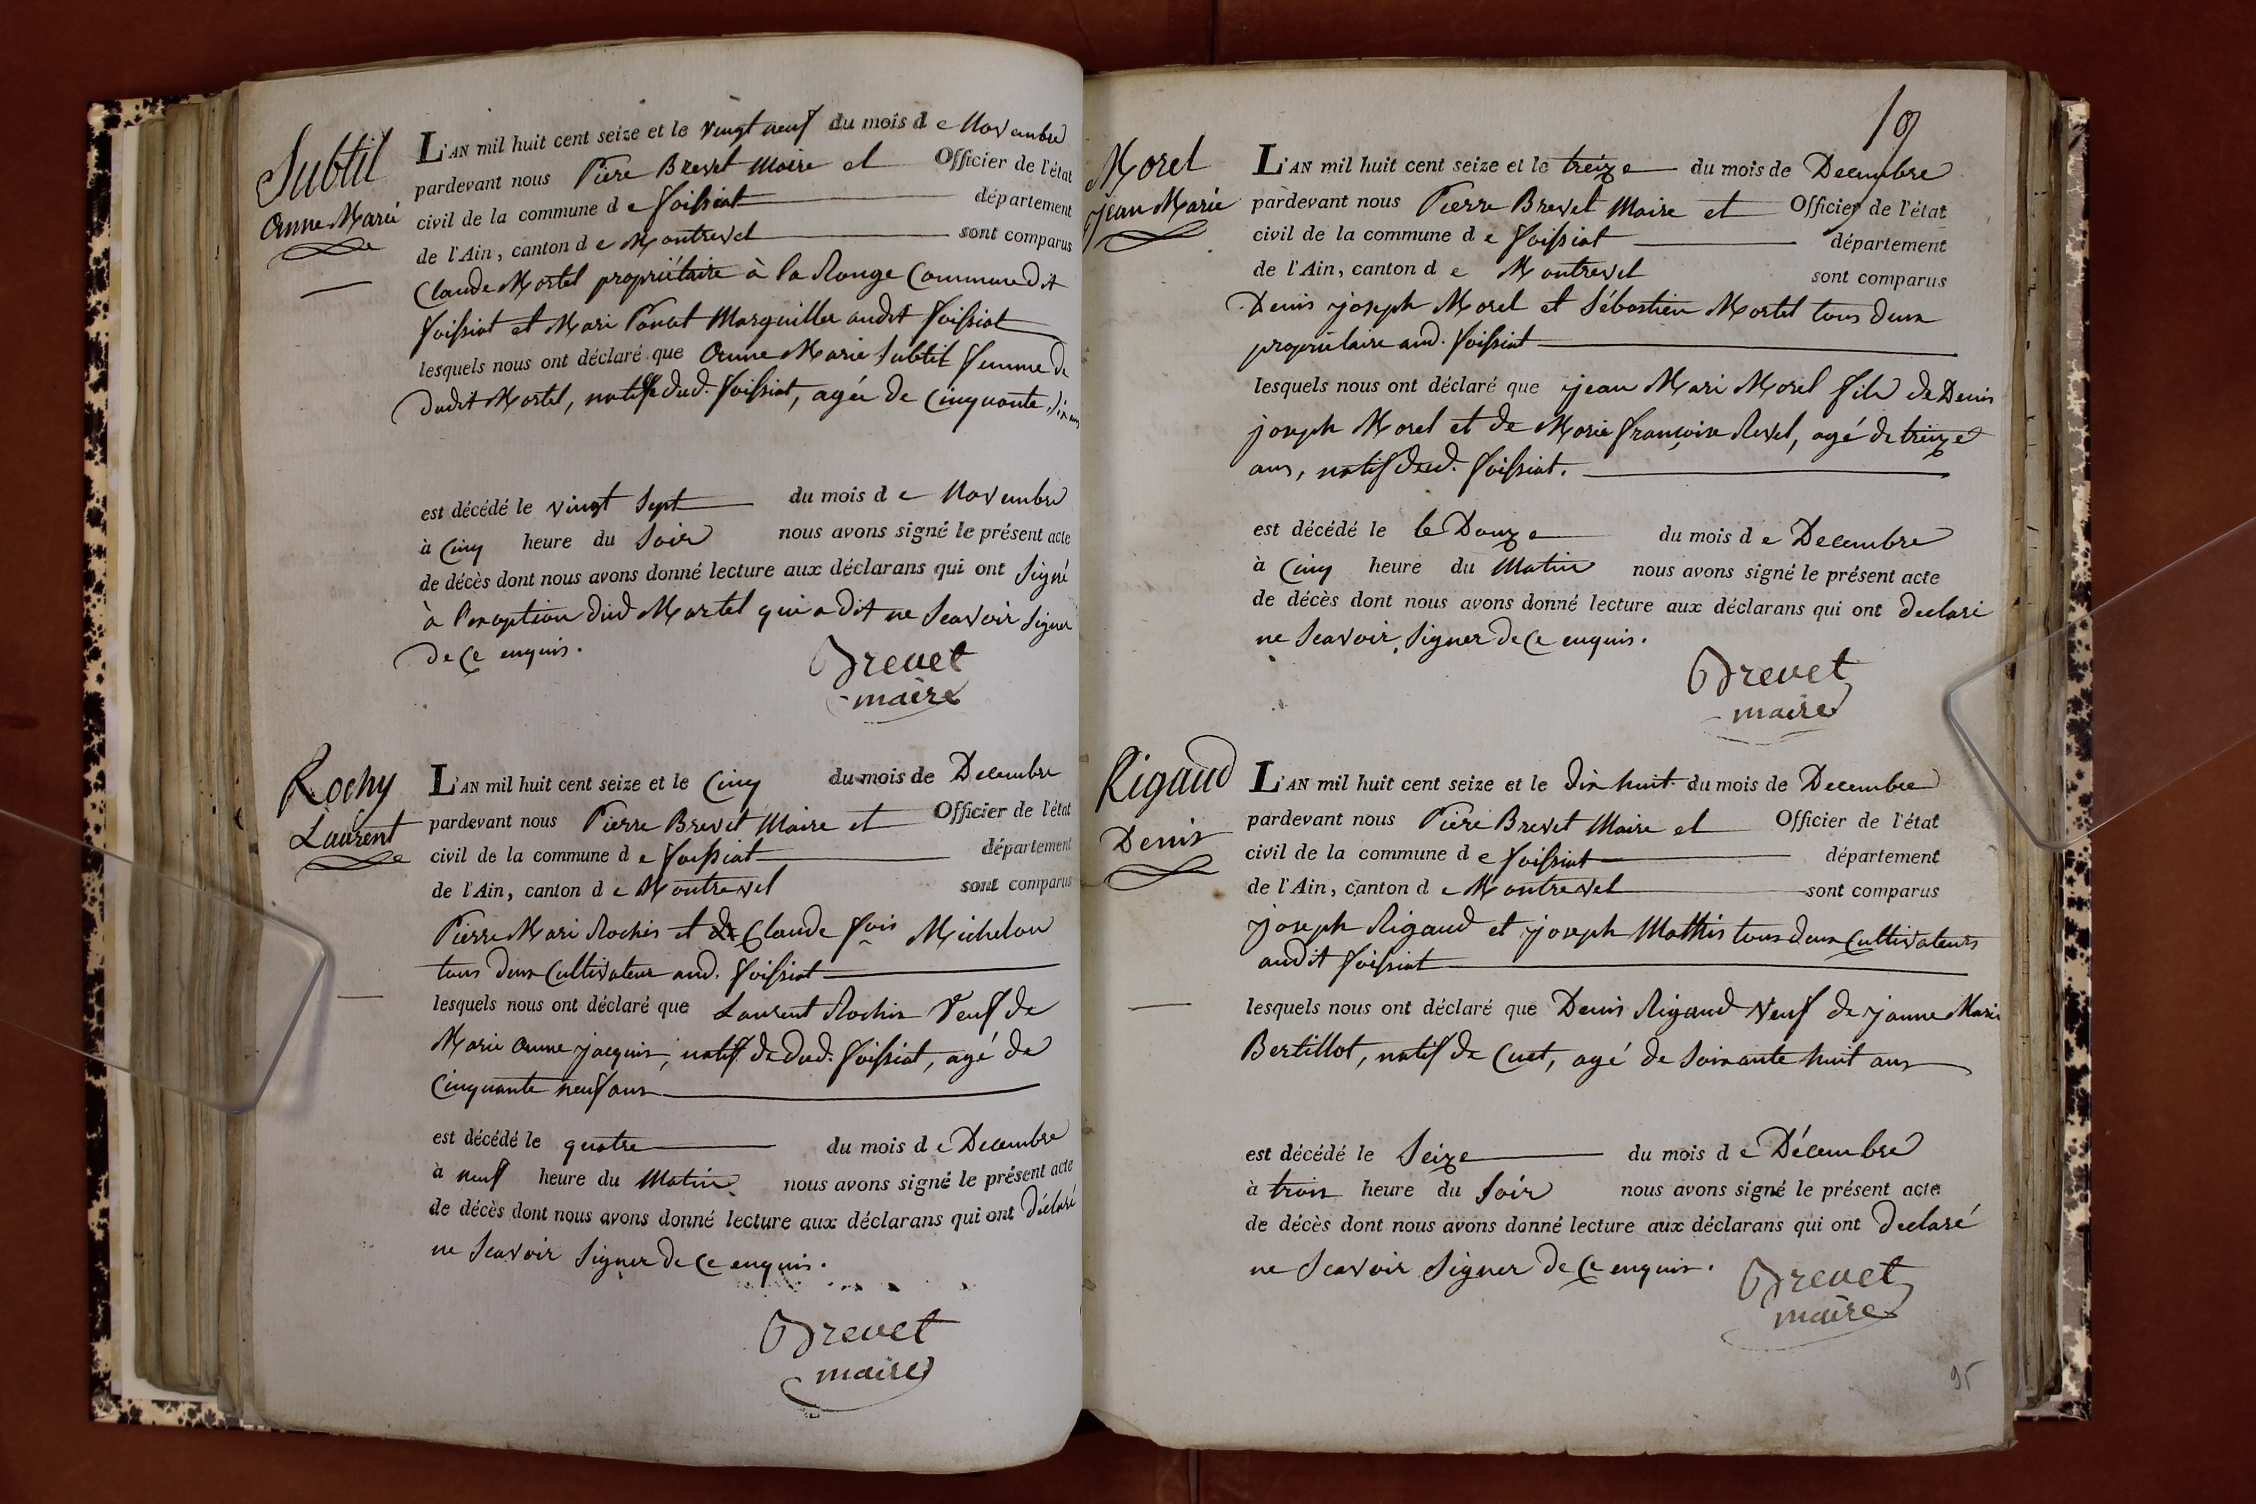 Subtil
Anne Marie
L'AN mil huit cent seize et le vingt neuf du mois de Novembre
pardevant nous Piere Brevet Maire et Officier de l'état
civil de la commune de foissiat département
de l'Ain, canton de Montrevel sont comparus
Claude Mortel propriétaire à la Rouge Commune dit
foissiat et Mari Ponat Marguiller audit foissiat
lesquels nous ont déclaré que Anne Marie Subtil femme de
dudit Mortel, natif dud. foissiat, agée de Cinquante six ans
est décédé le vingt Sept du mois de Novembre
à Cinq heure du Soir nous avons signé le présent acte
de décès dont nous avons donné lecture aux déclarans qui ont Signé
à l'exception dud Mortel qui a dit ne Scavoir Signer
de Ce enquis.
Brevet
maire
Rochy
Laurent
L'AN mil huit cent seize et le Cinq du mois de Decembre
pardevant nous Pierre Brevet Maire et Officier de l'état
civil de la commune de foissiat département
de l'Ain, canton de Montrevel sont comparus
Pierre Mari Rochis et de Claude fois Michelon
tous deux Cultivateur aud. foissiat
lesquels nous ont déclaré que Laurent Rochis Veuf de
Marie Anne Jacquis, natif de dud. foissiat, agé de
Cinquante neuf ans
est décédé le quatre du mois de Decembre
à neuf heure du Matin nous avons signé le présent acte
de décès dont nous avons donné lecture aux déclarans qui ont déclaré
ne Scavoir Signer de Ce enquis.
Brevet
maire
19
Morel
Jean Marie
L'AN mil huit cent seize et le treize du mois de Decembre
pardevant nous Pierre Brevet Maire et Officier de l'état
civil de la commune de foissiat département
de l'Ain, canton de Montrevel sont comparus
Denis joseph Morel et Sébastien Mortel tous deux
propriétaire aud. foissiat
lesquels nous ont déclaré que Jean Mari Morel fils de Denis
joseph Morel et de Marie françoise Revel, agé de treize
ans, natif dud. foissiat.
est décédé le le Douze du mois de Decembre
à Cinq heure du Matin nous avons signé le présent acte
de décès dont nous avons donné lecture aux déclarans qui ont declaré
ne Scavoir Signer de Ce enquis.
Brevet
maire
Rigaud
Denis
L'AN mil huit cent seize et le dix huit du mois de Decembre
pardevant nous Piere Brevet Maire et Officier de l'état
civil de la commune de foissiat département
de l'Ain, canton de Montrevel sont comparus
joseph Rigaud et joseph Mathis tous deux Cultivateurs
audit foissiat
lesquels nous ont déclaré que Denis Rigaud Veuf de jeanne Marie
Bertillot, natif de Cuet, agé de Soixante huit ans
est décédé le Seize du mois de Décembre
à trois heure du Soir nous avons signé le présent acte
de décès dont nous avons donné lecture aux déclarans qui ont declaré
ne Scavoir Signer de Ce enquis.
Brevet
maire
95